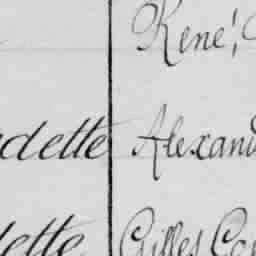 René,
dette Alexand
ette Gilles Co